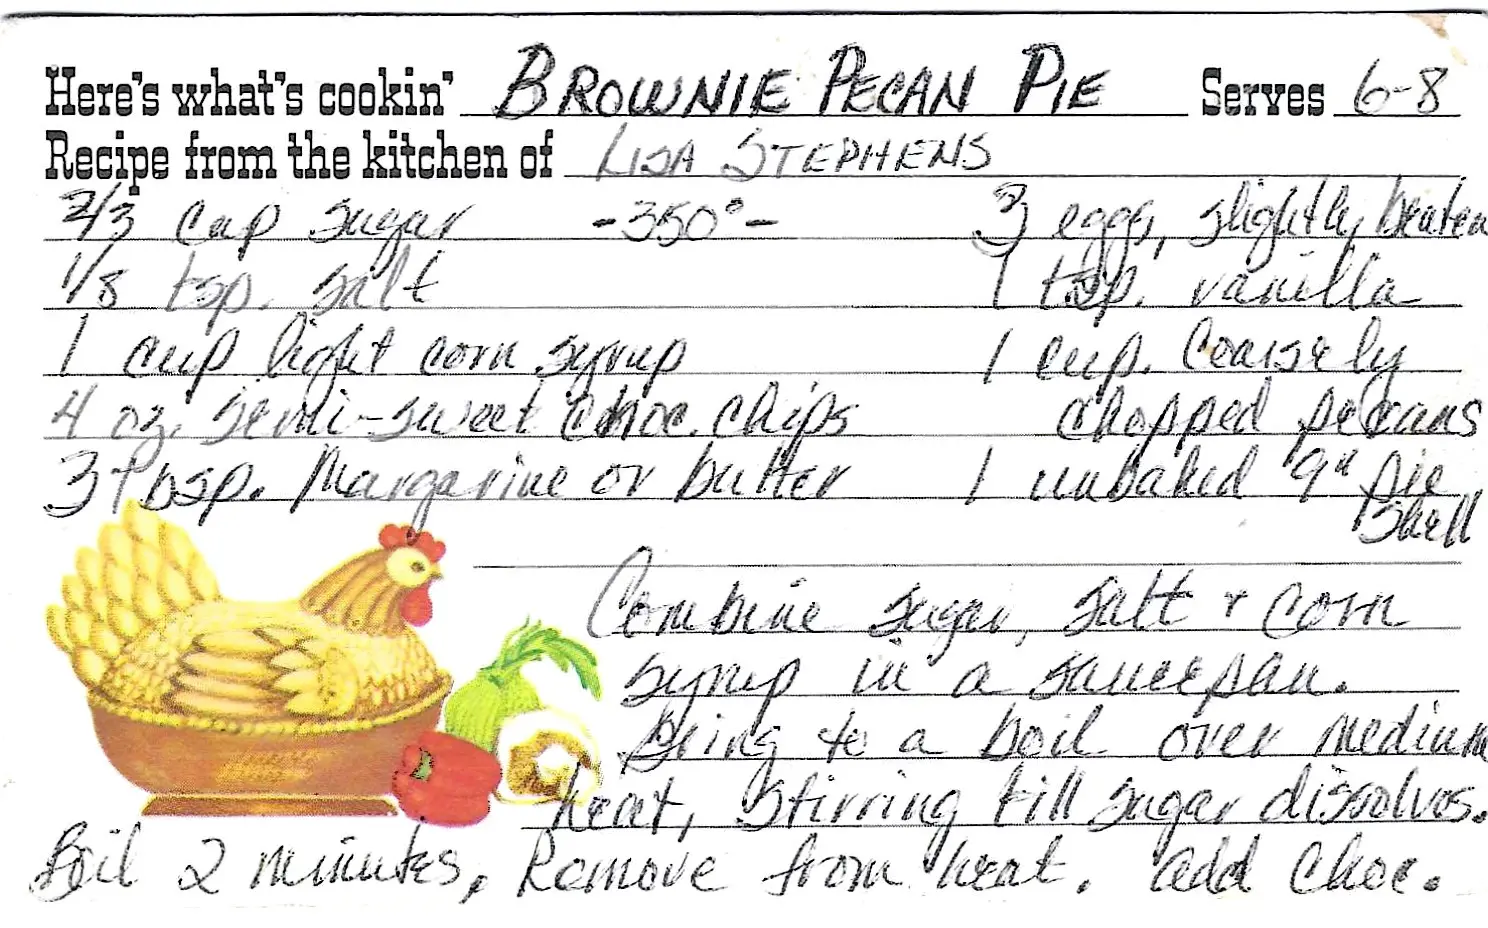 Here's what's cookin' BROWNIE PECAN PIE Serves 6-8
Recipe from the kitchen of LISA STEPHENS
2/3 cup sugar -350°- 3 eggs, slightly beaten
1/8 tsp. salt 1 tsp. vanilla
1 cup light corn syrup 1 cup. coarsely
4 oz. semi-sweet choc. chips chopped pecans
3 tbsp. Margarine or butter 1 unbaked 9" pie
shell
Combine sugar, salt + corn
syrup in a saucepan.
Bring to a boil over medium
heat, stirring till sugar dissolves.
Boil 2 minutes. Remove from heat. add choc.